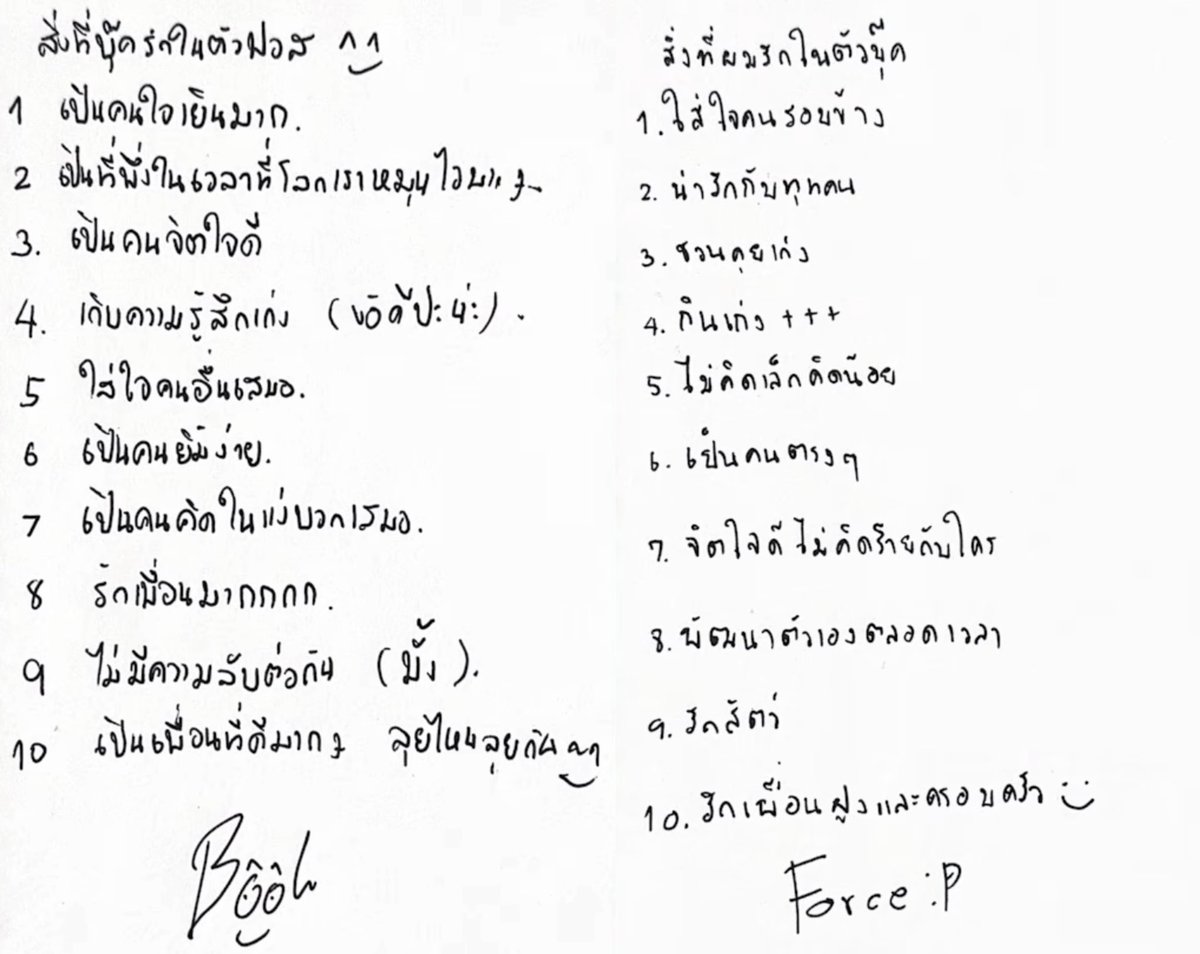 สิ่งที่บุ๊ครักในตัวฟอส ^^
1 เป็นคนใจเย็นมาก.
2 เป็นที่พึ่งในเวลาที่โลกเราหมุนไว
3. เป็นคนจิตใจดี
4. เก็บความรู้สึกเก่ง (ข้อดีป่ะน่ะ).
5 ใส่ใจคนอื่นเสมอ.
6 เป็นคนยิ้มง่าย.
7 เป็นคนคิดในแง่บวกเสมอ.
8 รักเพื่อนมากกกก.
9 ไม่มีความลับต่อกัน (มั้ง).
10 เป็นเพื่อนที่ดีมากๆ ลุยไหนลุยกัน ^^
Book
สิ่งที่ผมรักในตัวบุ๊ค
1. ใส่ใจคนรอบข้าง
2. น่ารักกับทุกคน
3. ชวนคุยเก่ง
4. กินเก่ง +++
5. ไม่คิดเล็กคิดน้อย
6. เป็นคนตรงๆ
7. จิตใจดี ไม่คิดร้ายกับใคร
8. พัฒนาตัวเองตลอดเวลา
9. รักสัตว์
10. รักเพื่อนฝูงและครอบครัว :)
Force :P